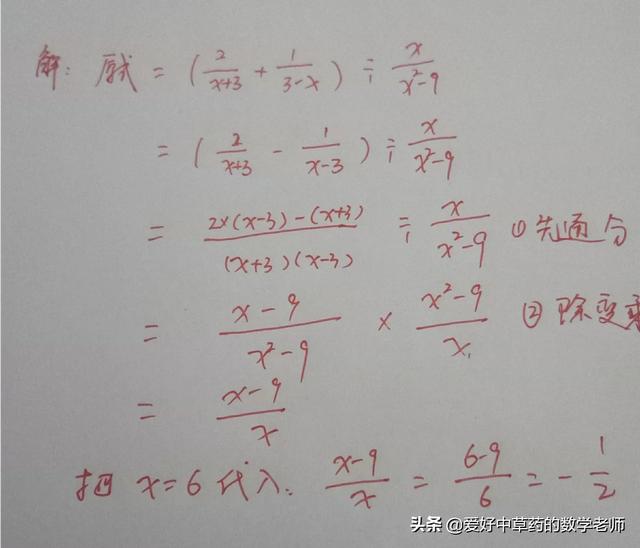 解: 原式 = (2/(x+3) + 1/(3-x)) ÷ x/(x²-9)
= (2/(x+3) - 1/(x-3)) ÷ x/(x²-9)
= (2×(x-3)-(x+3))/((x+3)(x-3)) ÷ x/(x²-9) ①先通分
= (x-9)/(x²-9) × (x²-9)/x ②除变乘
= (x-9)/x
把 x=6 代入: (x-9)/x = (6-9)/6 = -1/2
头条 @爱好中草药的数学老师